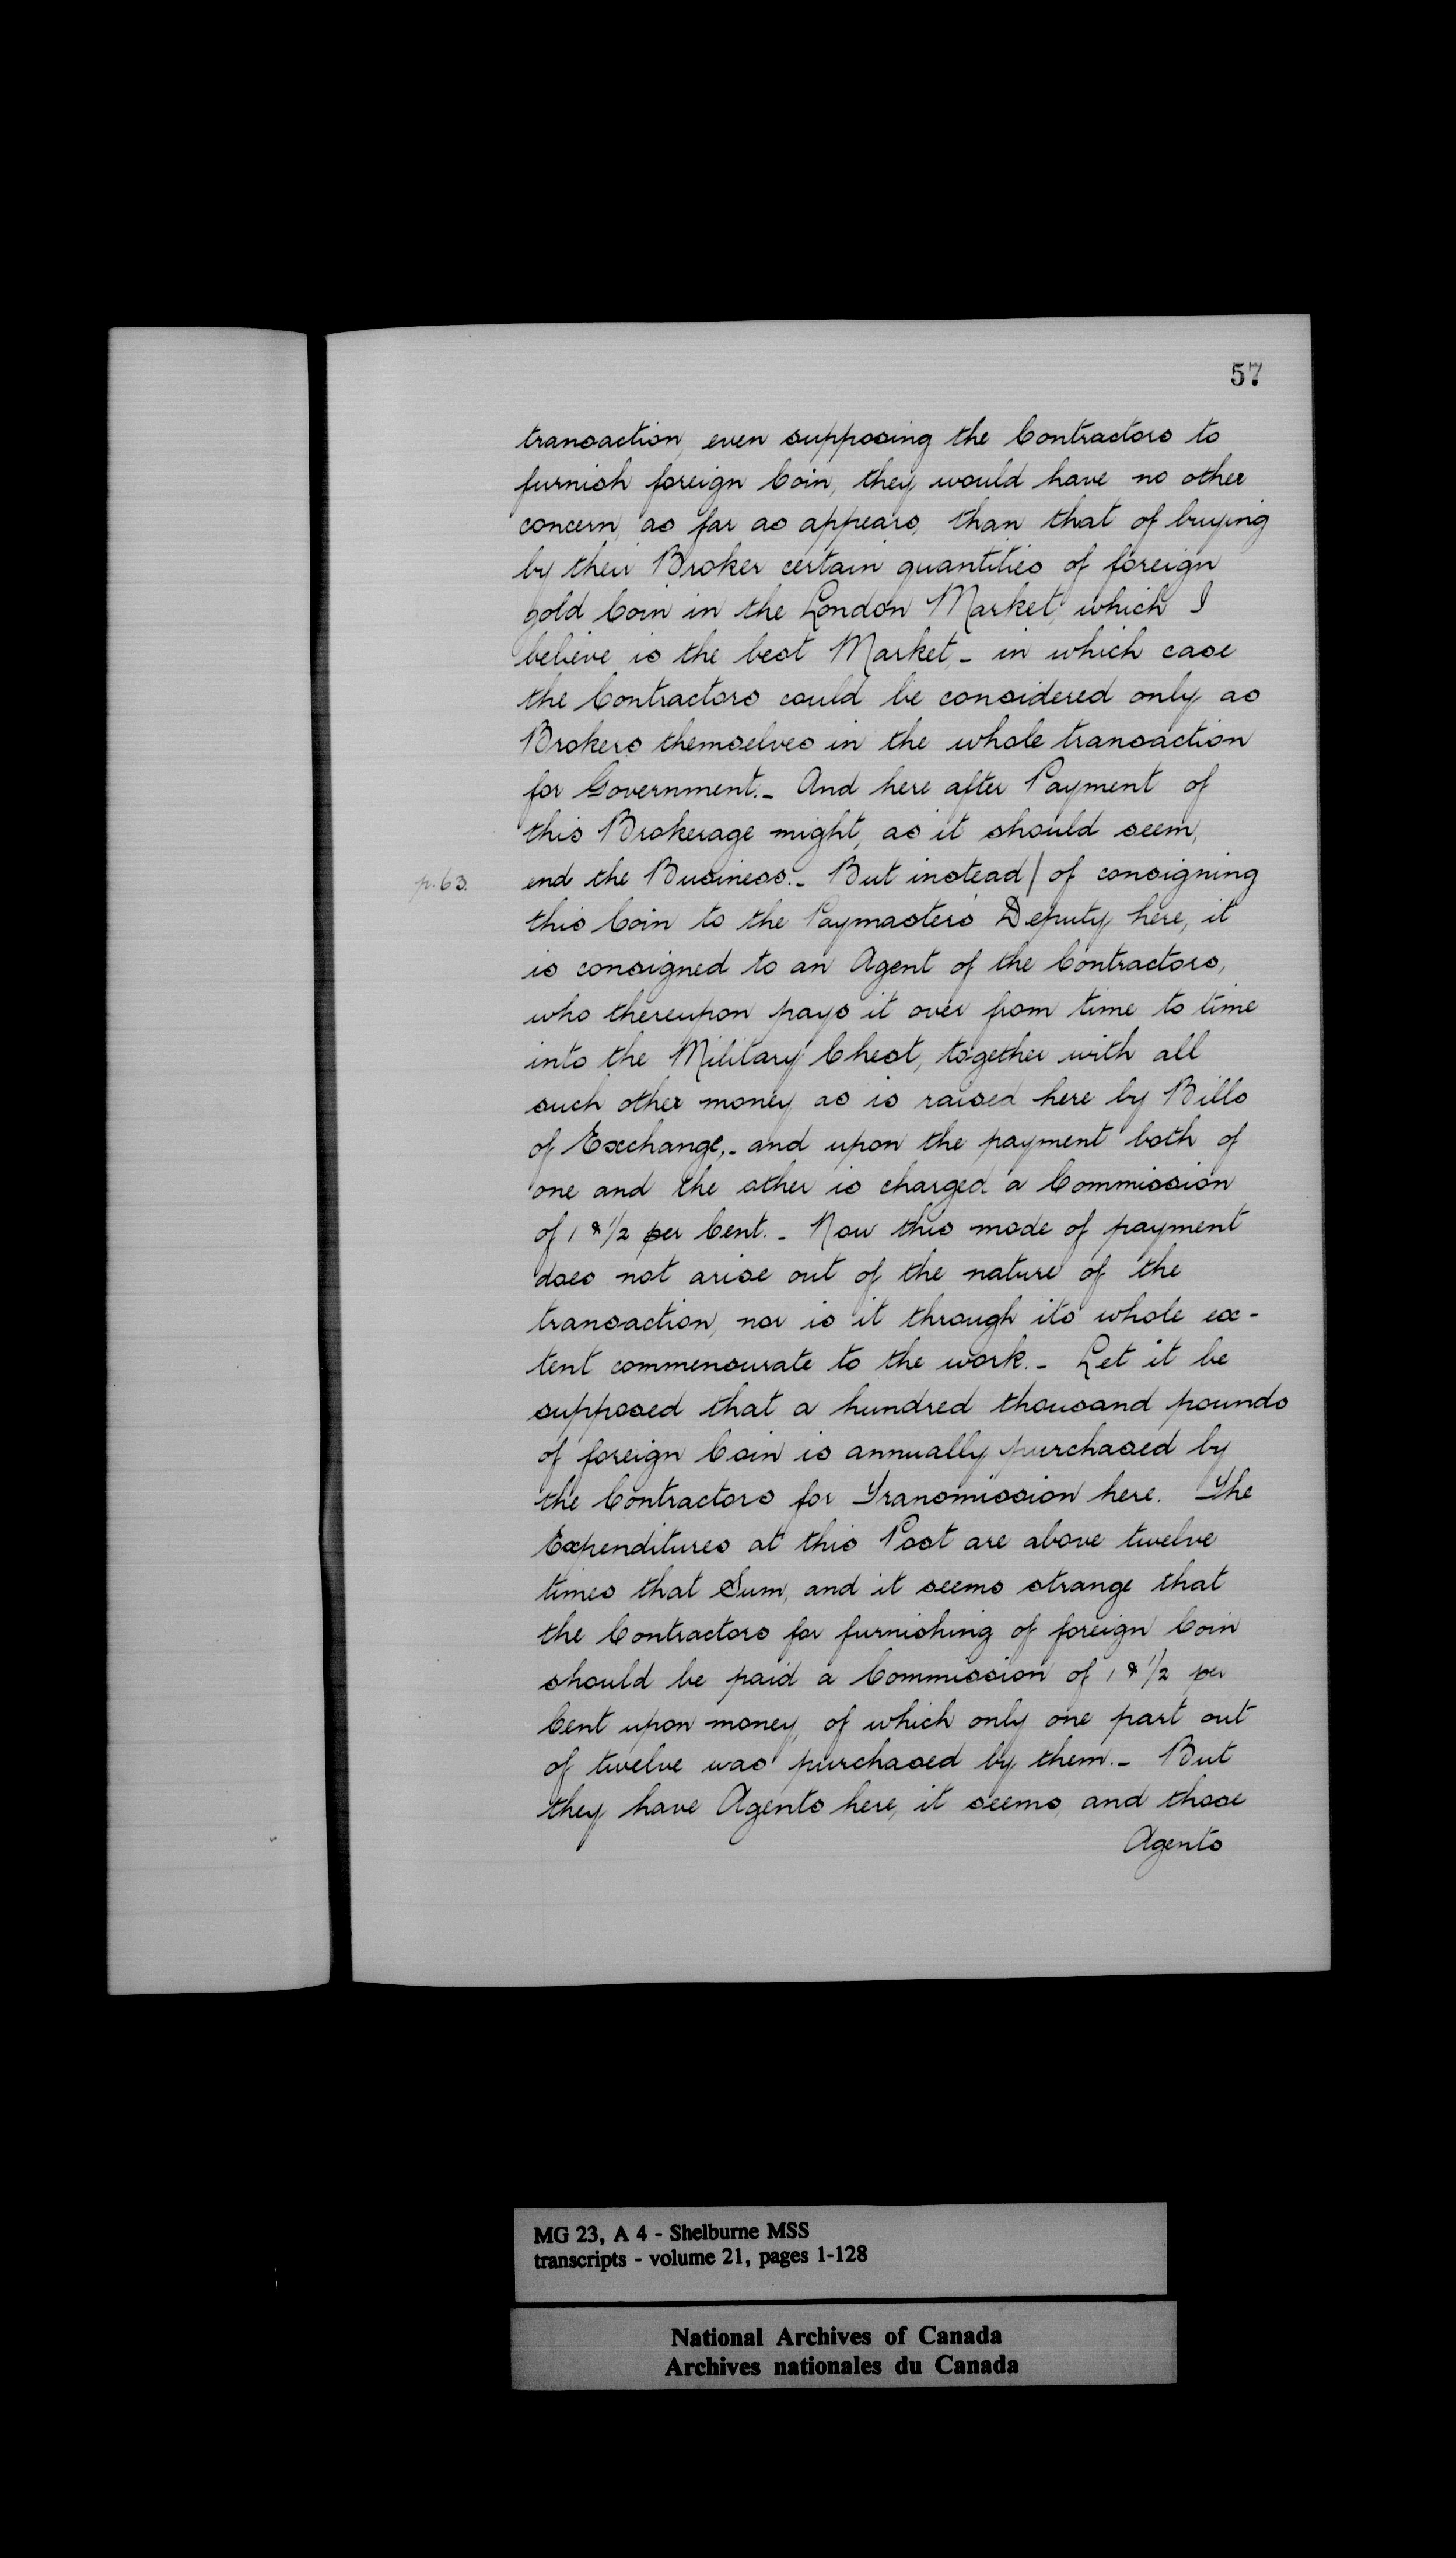 57
transaction, even supposing the Contractors to
furnish foreign Coin, they would have no other
concern, as far as appears, than that of buying
by their Broker certain quantities of foreign
gold Coin in the London Market, which I
believe is the best Market,- in which case
the Contractors could be considered only as
Brokers themselves in the whole transaction
for Government.- And here after Payment of
this Brokerage might, as it should seem,
p. 63. end the Business.- But instead / of consigning
this Coin to the Paymaster's Deputy here, it
is consigned to an Agent of the Contractors,
who thereupon pays it over from time to time
into the Military Chest, together with all
such other money as is raised here by Bills
of Exchange,- and upon the payment both of
one and the other is charged a Commission
of 1 & 1/2 per Cent.- Now this mode of payment
does not arise out of the nature of the
transaction, nor is it through its whole ex-
tent commensurate to the work.- Let it be
supposed that a hundred thousand pounds
of foreign Coin is annually purchased by
the Contractors for Transmission here. The
Expenditures at this Post are above twelve
times that Sum, and it seems strange that
the Contractors for furnishing of foreign Coin
should be paid a Commission of 1 & 1/2 per
Cent upon money, of which only one part out
of twelve was purchased by them.- But
they have Agents here, it seems, and those
Agents
MG 23, A 4 - Shelburne MSS
transcripts - volume 21, pages 1-128
National Archives of Canada
Archives nationales du Canada